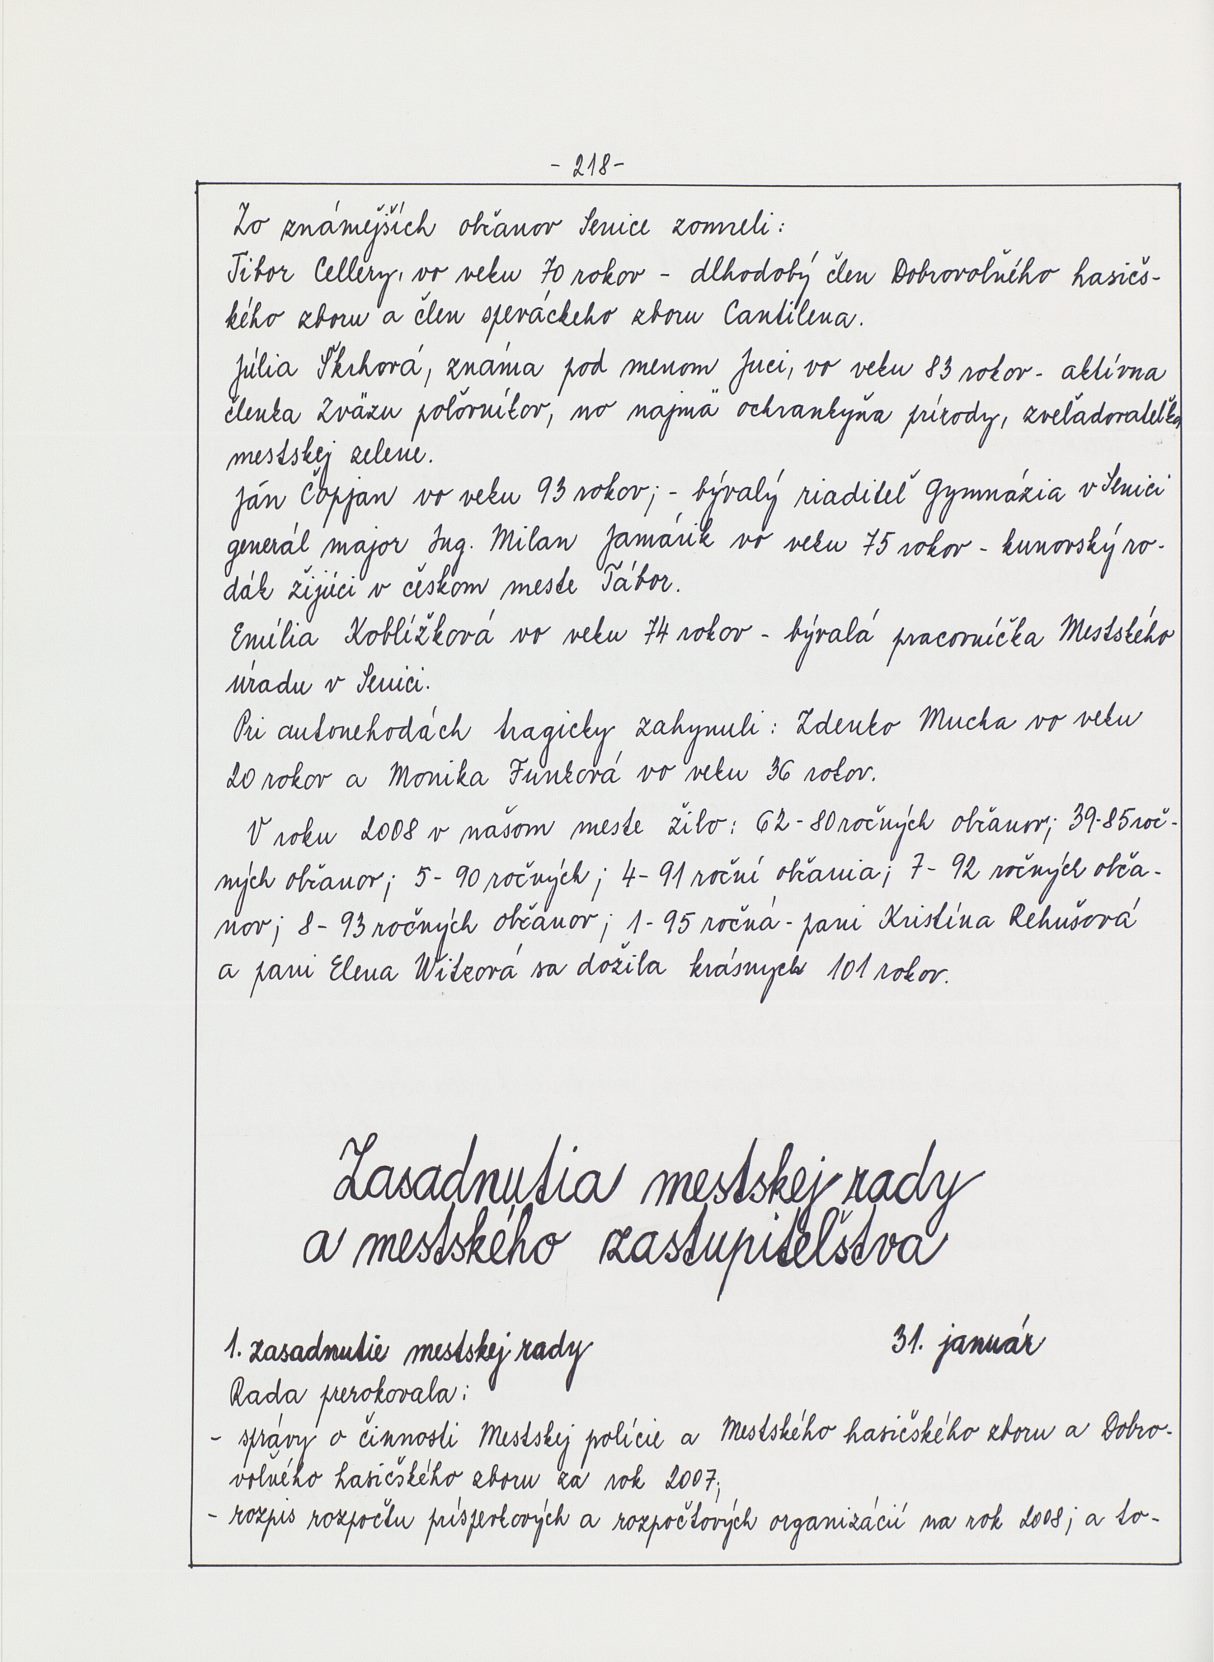 - 218 -
Zo známejších občanov Senice zomreli:
Tibor Cellery, vo veku 70 rokov - dlhodobý člen Dobrovoľného hasičs-
kého zboru a člen speváckeho zboru Cantilena.
Júlia Škrhová, známa pod menom Juci, vo veku 83 rokov - aktívna
členka Zväzu poľovníkov, no najmä ochrankyňa prírody, zveľaďovateľka
mestskej zelene.
Ján Čopjan vo veku 93 rokov; - bývalý riaditeľ Gymnázia v Senici
generál major Ing. Milan Jamárik vo veku 75 rokov - kunovský ro-
dák žijúci v českom meste Tábor.
Emília Koblížková vo veku 74 rokov - bývalá pracovníčka Mestského
úradu v Senici.
Pri autonehodách tragicky zahynuli: Zdenko Mucha vo veku
20 rokov a Monika Funková vo veku 36 rokov.
V roku 2008 v našom meste žilo: 62 - 80 ročných občanov; 39-85 roč-
ných občanov; 5 - 90 ročných; 4 - 91 roční občania; 7 - 92 ročných obča-
nov; 8 - 93 ročných občanov; 1 - 95 ročná - pani Kristína Rehušová
a pani Elena Witzová sa dožila krásnych 101 rokov.
Zasadnutia mestskej rady
a mestského zastupiteľstva
1. zasadnutie mestskej rady 31. január
Rada prerokovala:
- správy o činnosti Mestskej polície a Mestského hasičského zboru a Dobro-
voľného hasičského zboru za rok 2007;
- rozpis rozpočtu príspevkových a rozpočtových organizácií na rok 2008; a to-